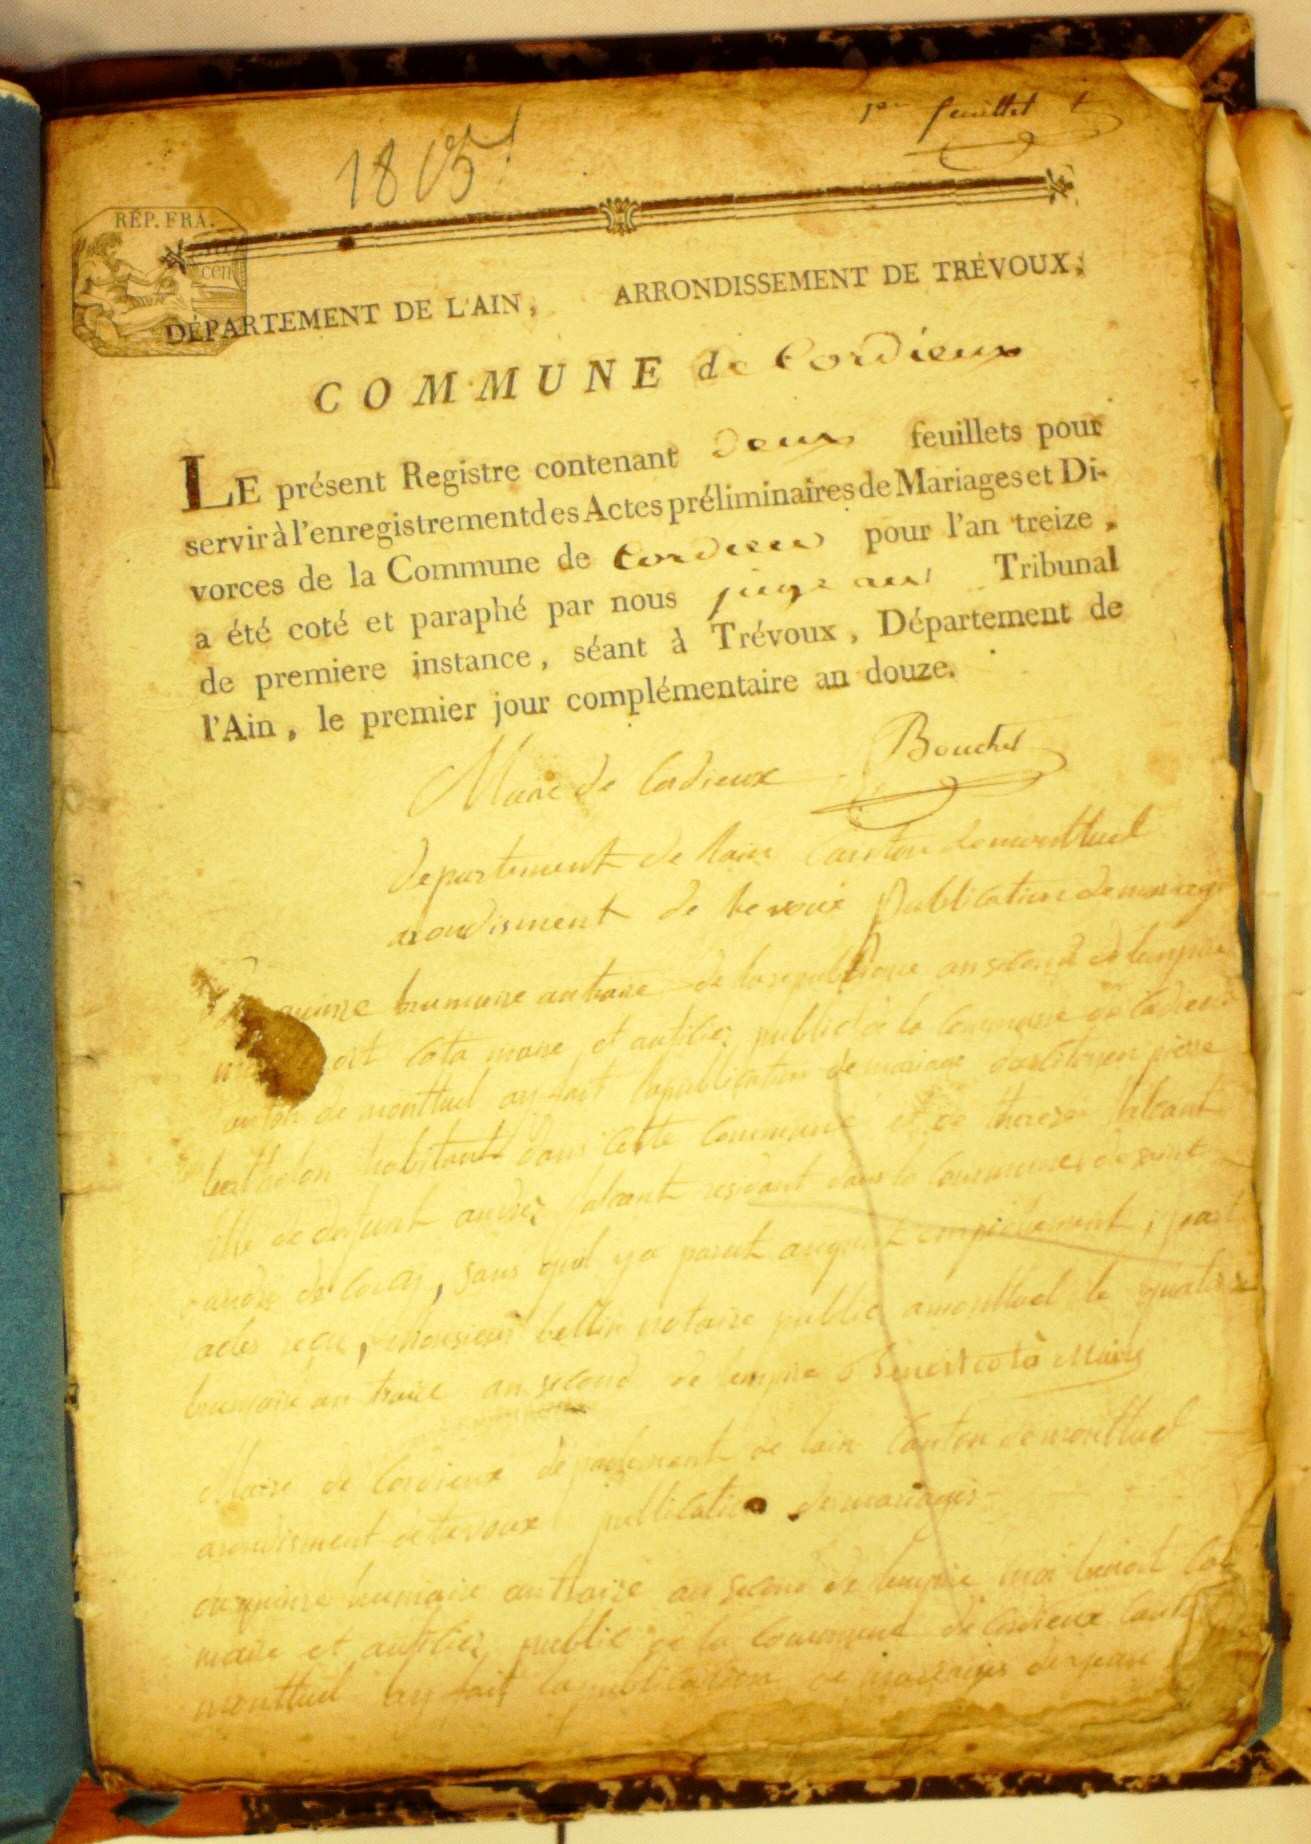 1er feuillet
1805
RÉP. FRA.
cen
DÉPARTEMENT DE L'AIN, ARRONDISSEMENT DE TRÉVOUX,
COMMUNE de Cordieux
LE présent Registre contenant deux feuillets pour
servir à l'enregistrement des Actes préliminaires de Mariages et Di-
vorces de la Commune de Cordieux pour l'an treize,
a été coté et paraphé par nous juge au Tribunal
de premiere instance, séant à Trévoux, Département de
l'Ain, le premier jour complémentaire an douze.
Bouchet
Marie de Cordieux
departement de lain Canton de monttuel
arondisment de trevoux Publication de mariage
quinze brumaire an traize de la republique an second de lempire
cota maire et aufisier public de la Commune de Cordieux
canton de monttuel ay fait la publication de mariage du citoyen pierre
berthelon habitant dans cette Commune et de therese
fille de defunt andre residant dans la Commune de saint
andre de Corcy, sans quil y a parut auqunt empichement, part
actes reçu, Monsieur bellin notaire public a monttuel le quatorze
brumaire an traize an second de lempire Benoit cotà Maire
Maire de Cordieux departement de lain Canton de monttuel
arondisment de trevoux publication de mariages
du quinze brumaire an traize an second de lempire moi benoit
maire et aufisier public de la Commune de Cordieux
monttuel ay fait la publication de mariages de jean